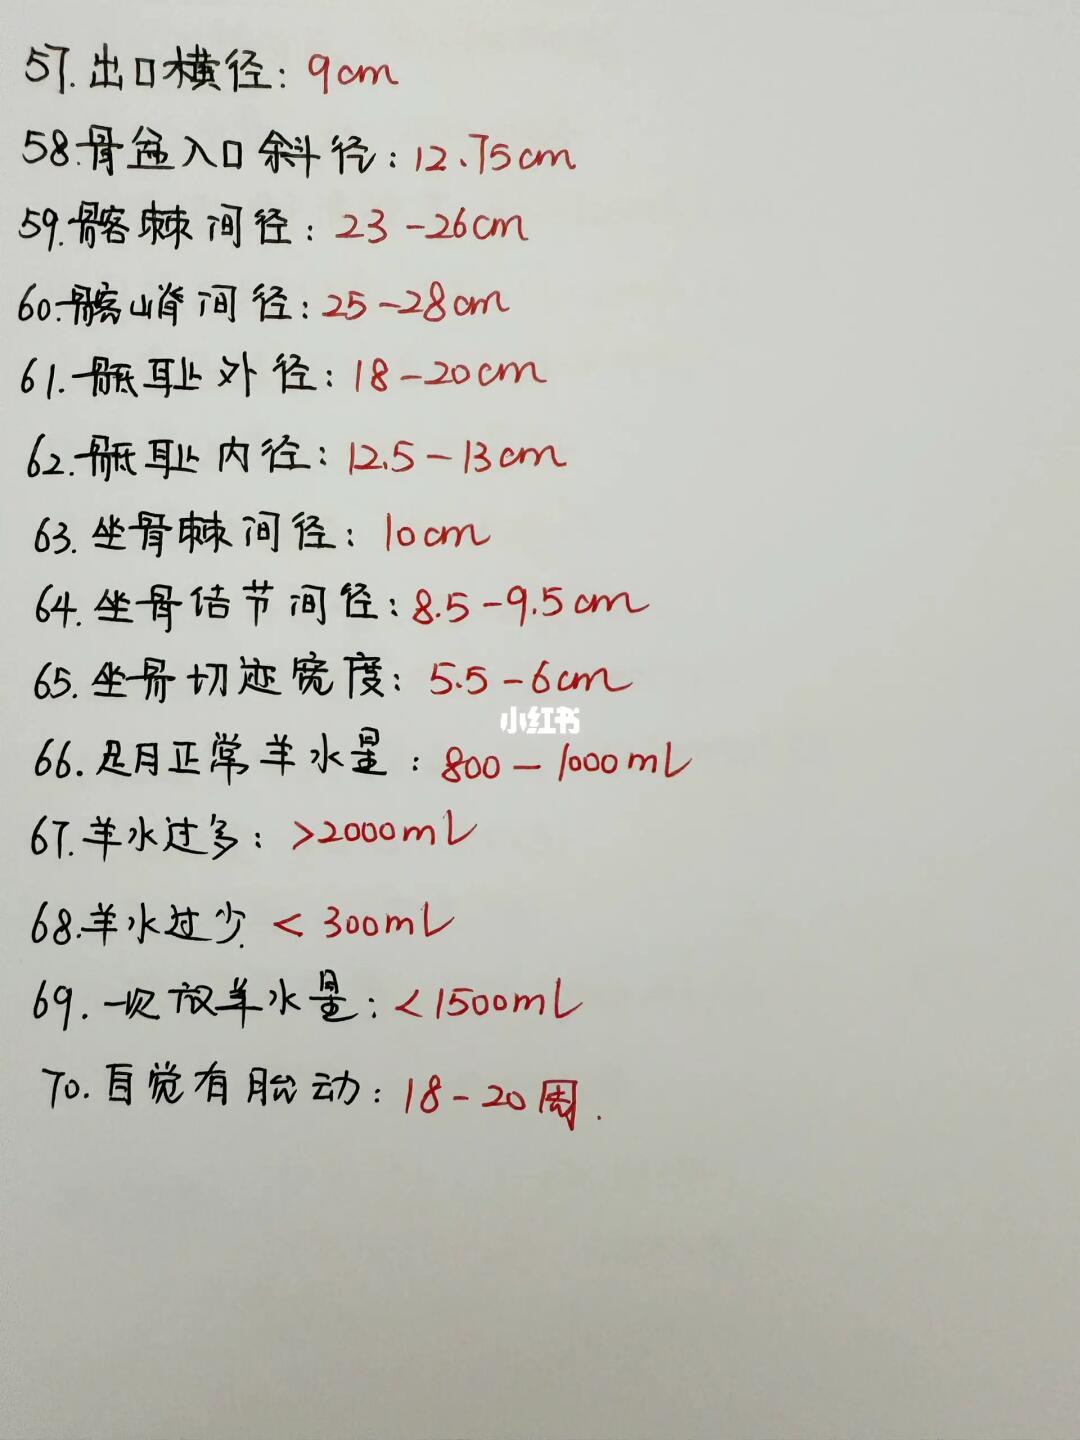 57.出口横径：9cm
58.骨盆入口斜径：12.75cm
59.髂棘间径：23-26cm
60.髂嵴间径：25-28cm
61.骶耻外径：18-20cm
62.骶耻内径：12.5-13cm
63.坐骨棘间径：10cm
64.坐骨结节间径：8.5-9.5cm
65.坐骨切迹宽度：5.5-6cm
小红书
66.足月正常羊水量：800-1000mL
67.羊水过多：>2000mL
68.羊水过少<300mL
69.一次放羊水量：<1500mL
70.自觉有胎动：18-20周.